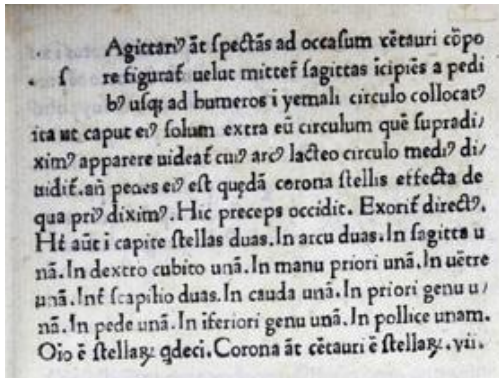 Agittariꝰ āt ſpectãs ad occaſum cẽtauri cõpo
ſ re figurat᷑ uelut mittet᷑ ſagittas ĩcipiẽs a pedi
bꝰ uſqꝫ ad humeros i yemali circulo collocatꝰ
ita ut caput eiꝰ ſolum extra eũ circulum quẽ ſupradi/
ximꝰ apparere uideat᷑ cuiꝰ arcꝰ lacteo circulo mediꝰ di/
uidit᷑. añ pedes eiꝰ eſt quędã corona ſtellis effecta de
qua priꝰ diximꝰ. Hic preceps occidit. Exorit᷑ directꝰ.
Ht᷑ aūt i capite ſtellas duas. In arcu duas. In ſagitta u
nã. In dextro cubito unã. In manu priori unã. In uẽtre
unã. Int᷑ ſcapilio duas. In cauda unã. In priori genu u/
nã. In pede unã. In ĩferiori genu unã. In pollice unam.
Oĩo ẽ ſtellaꝝ qdeci. Corona āt cẽtauri ẽ ſtellaꝝ. vii.